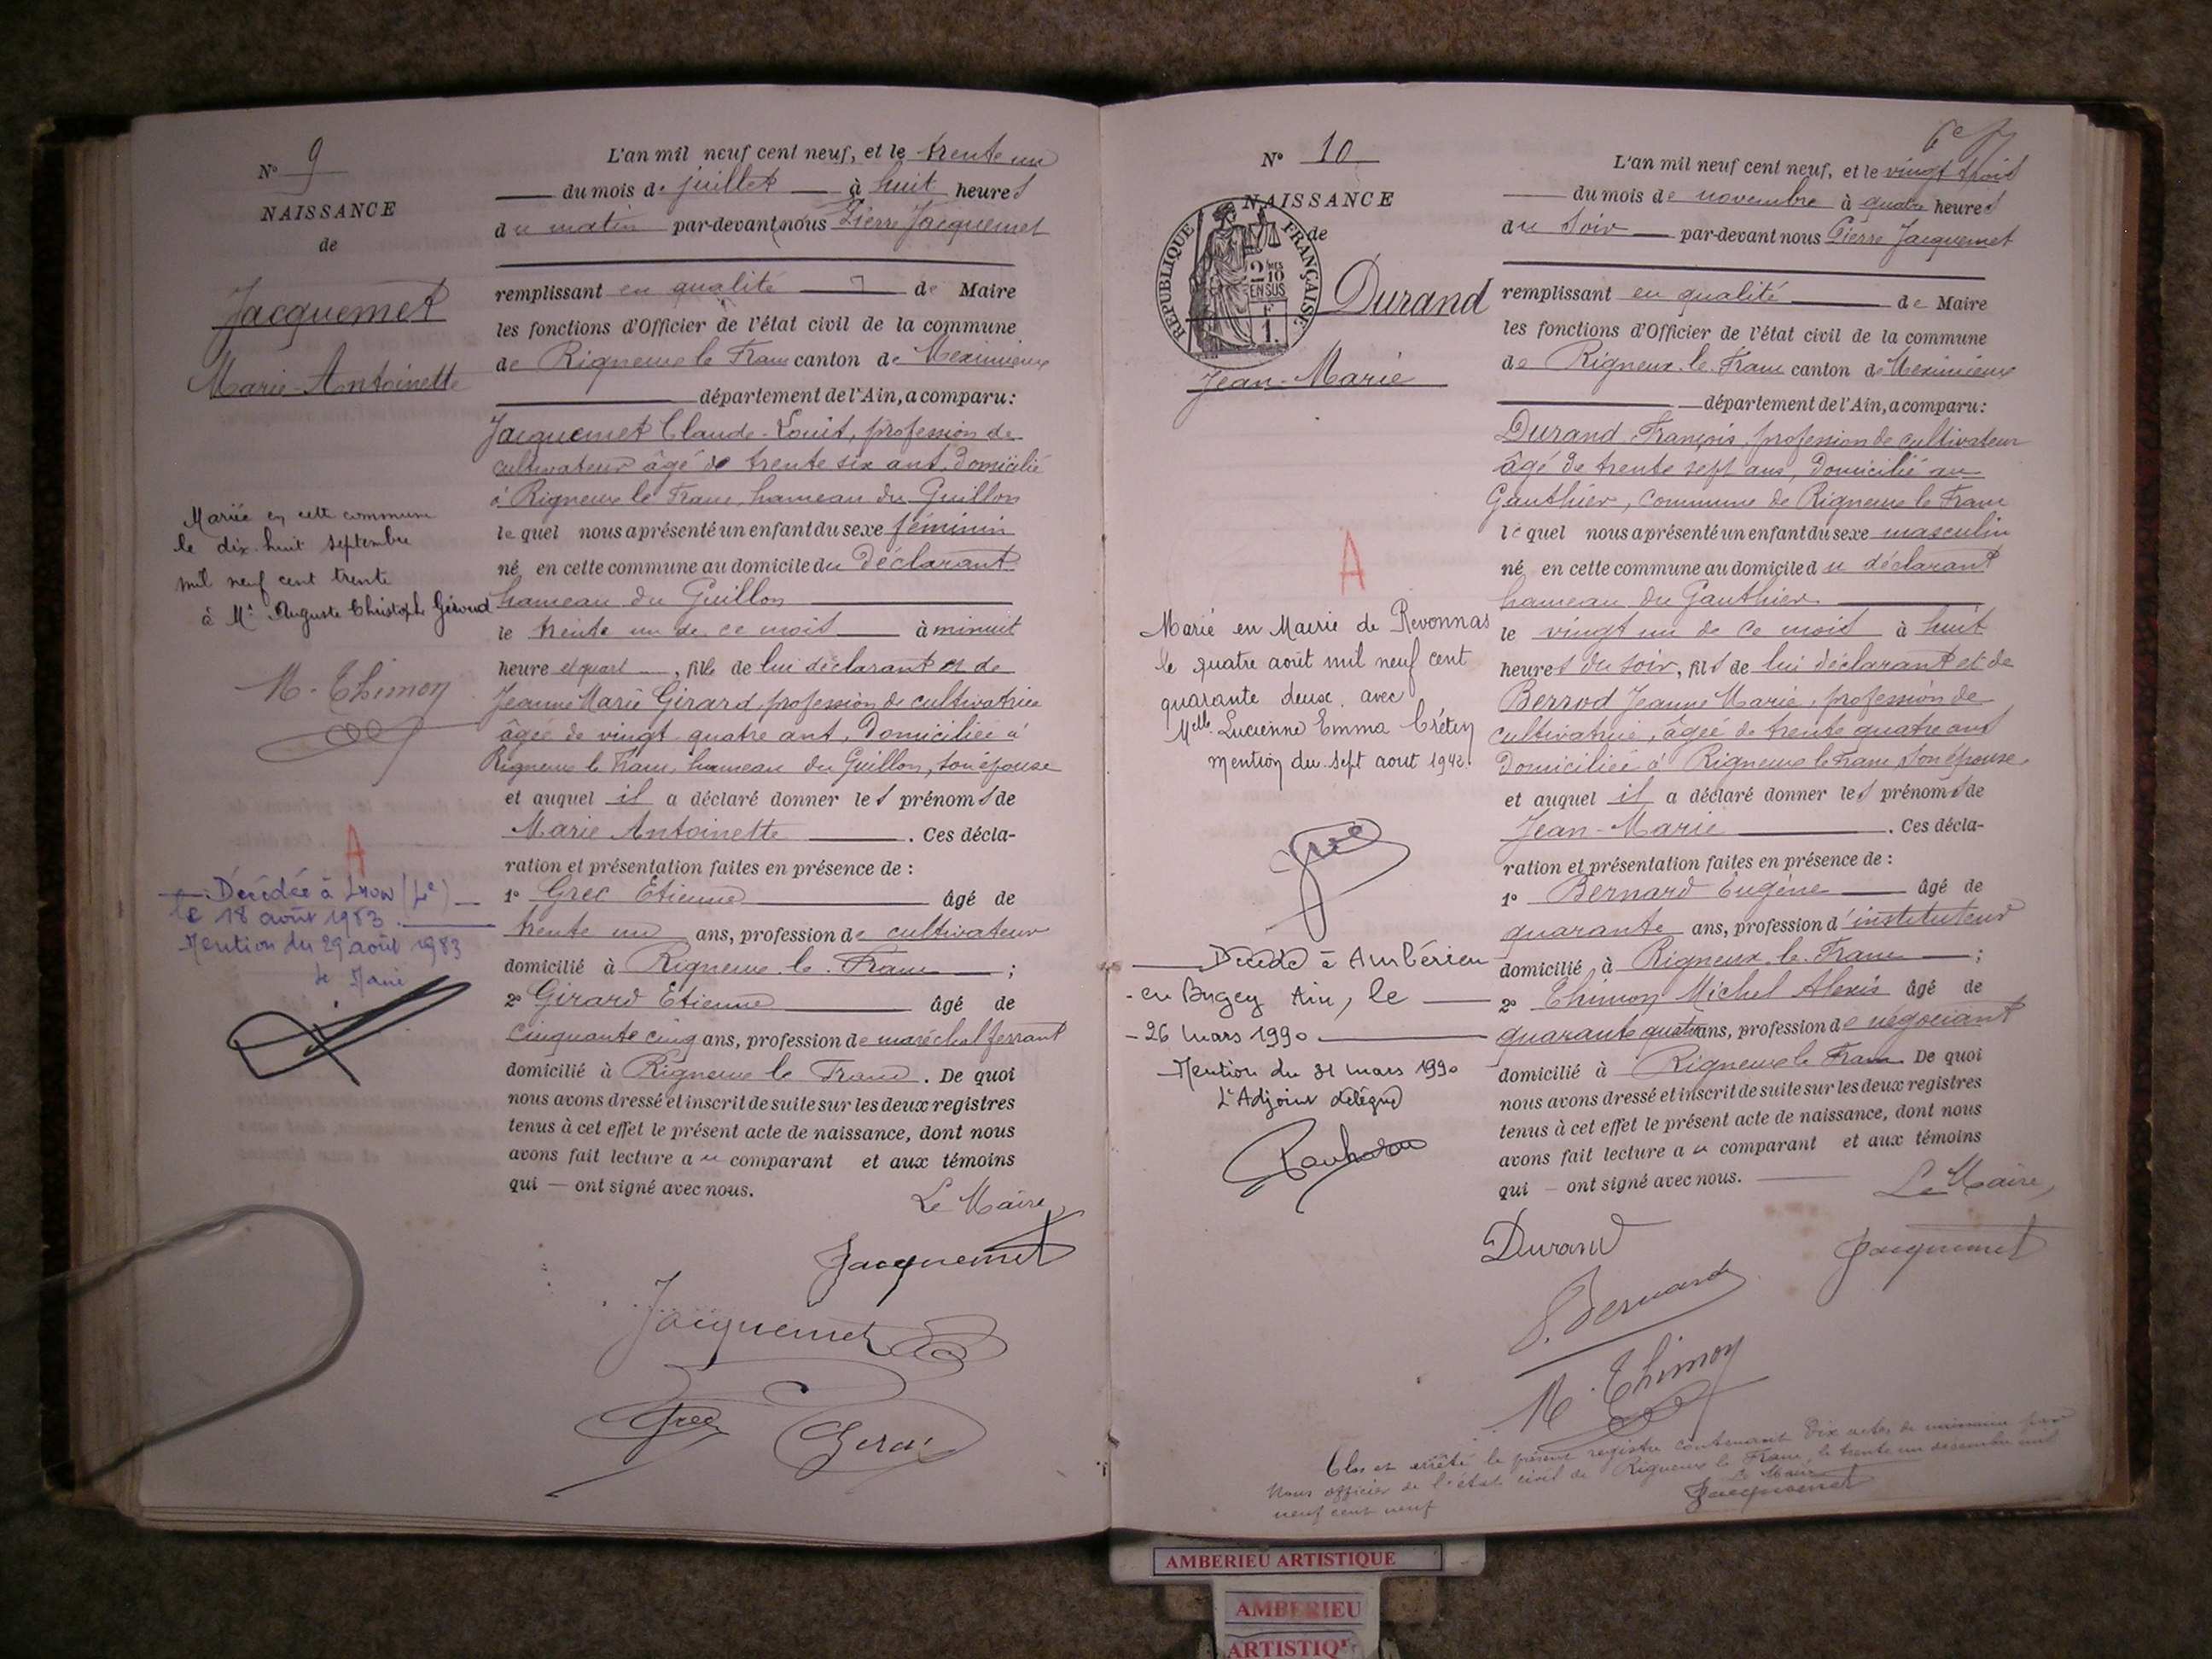 N° 9
NAISSANCE
de
Jacquemet
Marie-Antoinette
Mariée en cette commune
le dix-huit septembre
mil neuf cent trente
à Mr Auguste Christophe Géroud
M. Thimon
A
Décédée à Lyon (4e)
le 18 août 1983
Mention du 29 août 1983
le Maire
L'an mil neuf cent neuf, et le trente un
du mois de juillet à huit heures
du matin par-devant nous Pierre Jacquemet
remplissant en qualité de Maire
les fonctions d'Officier de l'état civil de la commune
de Rigneux le Franc canton de Meximieux
département de l'Ain, a comparu :
Jacquemet Claude-Louis, profession de
cultivateur âgé de trente six ans, domicilié
à Rigneux le Franc, hameau du Guillon
lequel nous a présenté un enfant du sexe féminin
né en cette commune au domicile du déclarant
hameau du Guillon
le trente un de ce mois à minuit
heure et quart, fille de lui déclarant et de
Jeanne Marie Girard, profession de cultivatrice
âgée de vingt quatre ans, domiciliée à
Rigneux le Franc, hameau du Guillon, son épouse
et auquel il a déclaré donner les prénoms de
Marie Antoinette. Ces décla-
ration et présentation faites en présence de :
1° Grec Etienne âgé de
trente un ans, profession de cultivateur
domicilié à Rigneux le Franc ;
2° Girard Etienne âgé de
cinquante cinq ans, profession de maréchal ferrant
domicilié à Rigneux le Franc. De quoi
nous avons dressé et inscrit de suite sur les deux registres
tenus à cet effet le présent acte de naissance, dont nous
avons fait lecture au comparant et aux témoins
qui — ont signé avec nous.
Le Maire,
Jacquemet
Jacquemet
Grec
N° 10
NAISSANCE
de
REPUBLIQUE FRANÇAISE
2/10 MES EN SUS
1 F.
Durand
Jean-Marie
A
Marié en Mairie de Revonnas
le quatre août mil neuf cent
quarante deux avec
Melle Lucienne Emma Crétin
mention du sept aout 1942.
Décédé à Ambérieu
en Bugey Ain, le
26 mars 1990
Mention du 31 mars 1990
L'Adjoint délégué
L'an mil neuf cent neuf, et le vingt trois
du mois de novembre à quatre heures
du soir par-devant nous Pierre Jacquemet
remplissant en qualité de Maire
les fonctions d'Officier de l'état civil de la commune
de Rigneux le Franc canton de Meximieux
département de l'Ain, a comparu :
Durand François, profession de cultivateur
âgé de trente sept ans, domicilié au
Gauthier, commune de Rigneux le Franc
lequel nous a présenté un enfant du sexe masculin
né en cette commune au domicile du déclarant
hameau du Gauthier
le vingt un de ce mois à huit
heures du soir, fils de lui déclarant et de
Berrod Jeanne Marie, profession de
cultivatrice, âgée de trente quatre ans
domiciliée à Rigneux le Franc, son épouse,
et auquel il a déclaré donner les prénoms de
Jean-Marie. Ces décla-
ration et présentation faites en présence de :
1° Bernard Eugène âgé de
quarante ans, profession d'instituteur
domicilié à Rigneux le Franc ;
2° Thimon Michel Alexis âgé de
quarante quatre ans, profession de négociant
domicilié à Rigneux le Franc. De quoi
nous avons dressé et inscrit de suite sur les deux registres
tenus à cet effet le présent acte de naissance, dont nous
avons fait lecture au comparant et aux témoins
qui — ont signé avec nous.
Le Maire,
Durand
Jacquemet
Bernard
M. Thimon
Clos et arrêté le présent registre contenant dix actes de naissance par
Nous officier de l'état civil de Rigneux le Franc, le trente un décembre mil
neuf cent neuf
Le Maire
Jacquemet
AMBERIEU ARTISTIQUE
AMBERIEU
ARTISTIQ